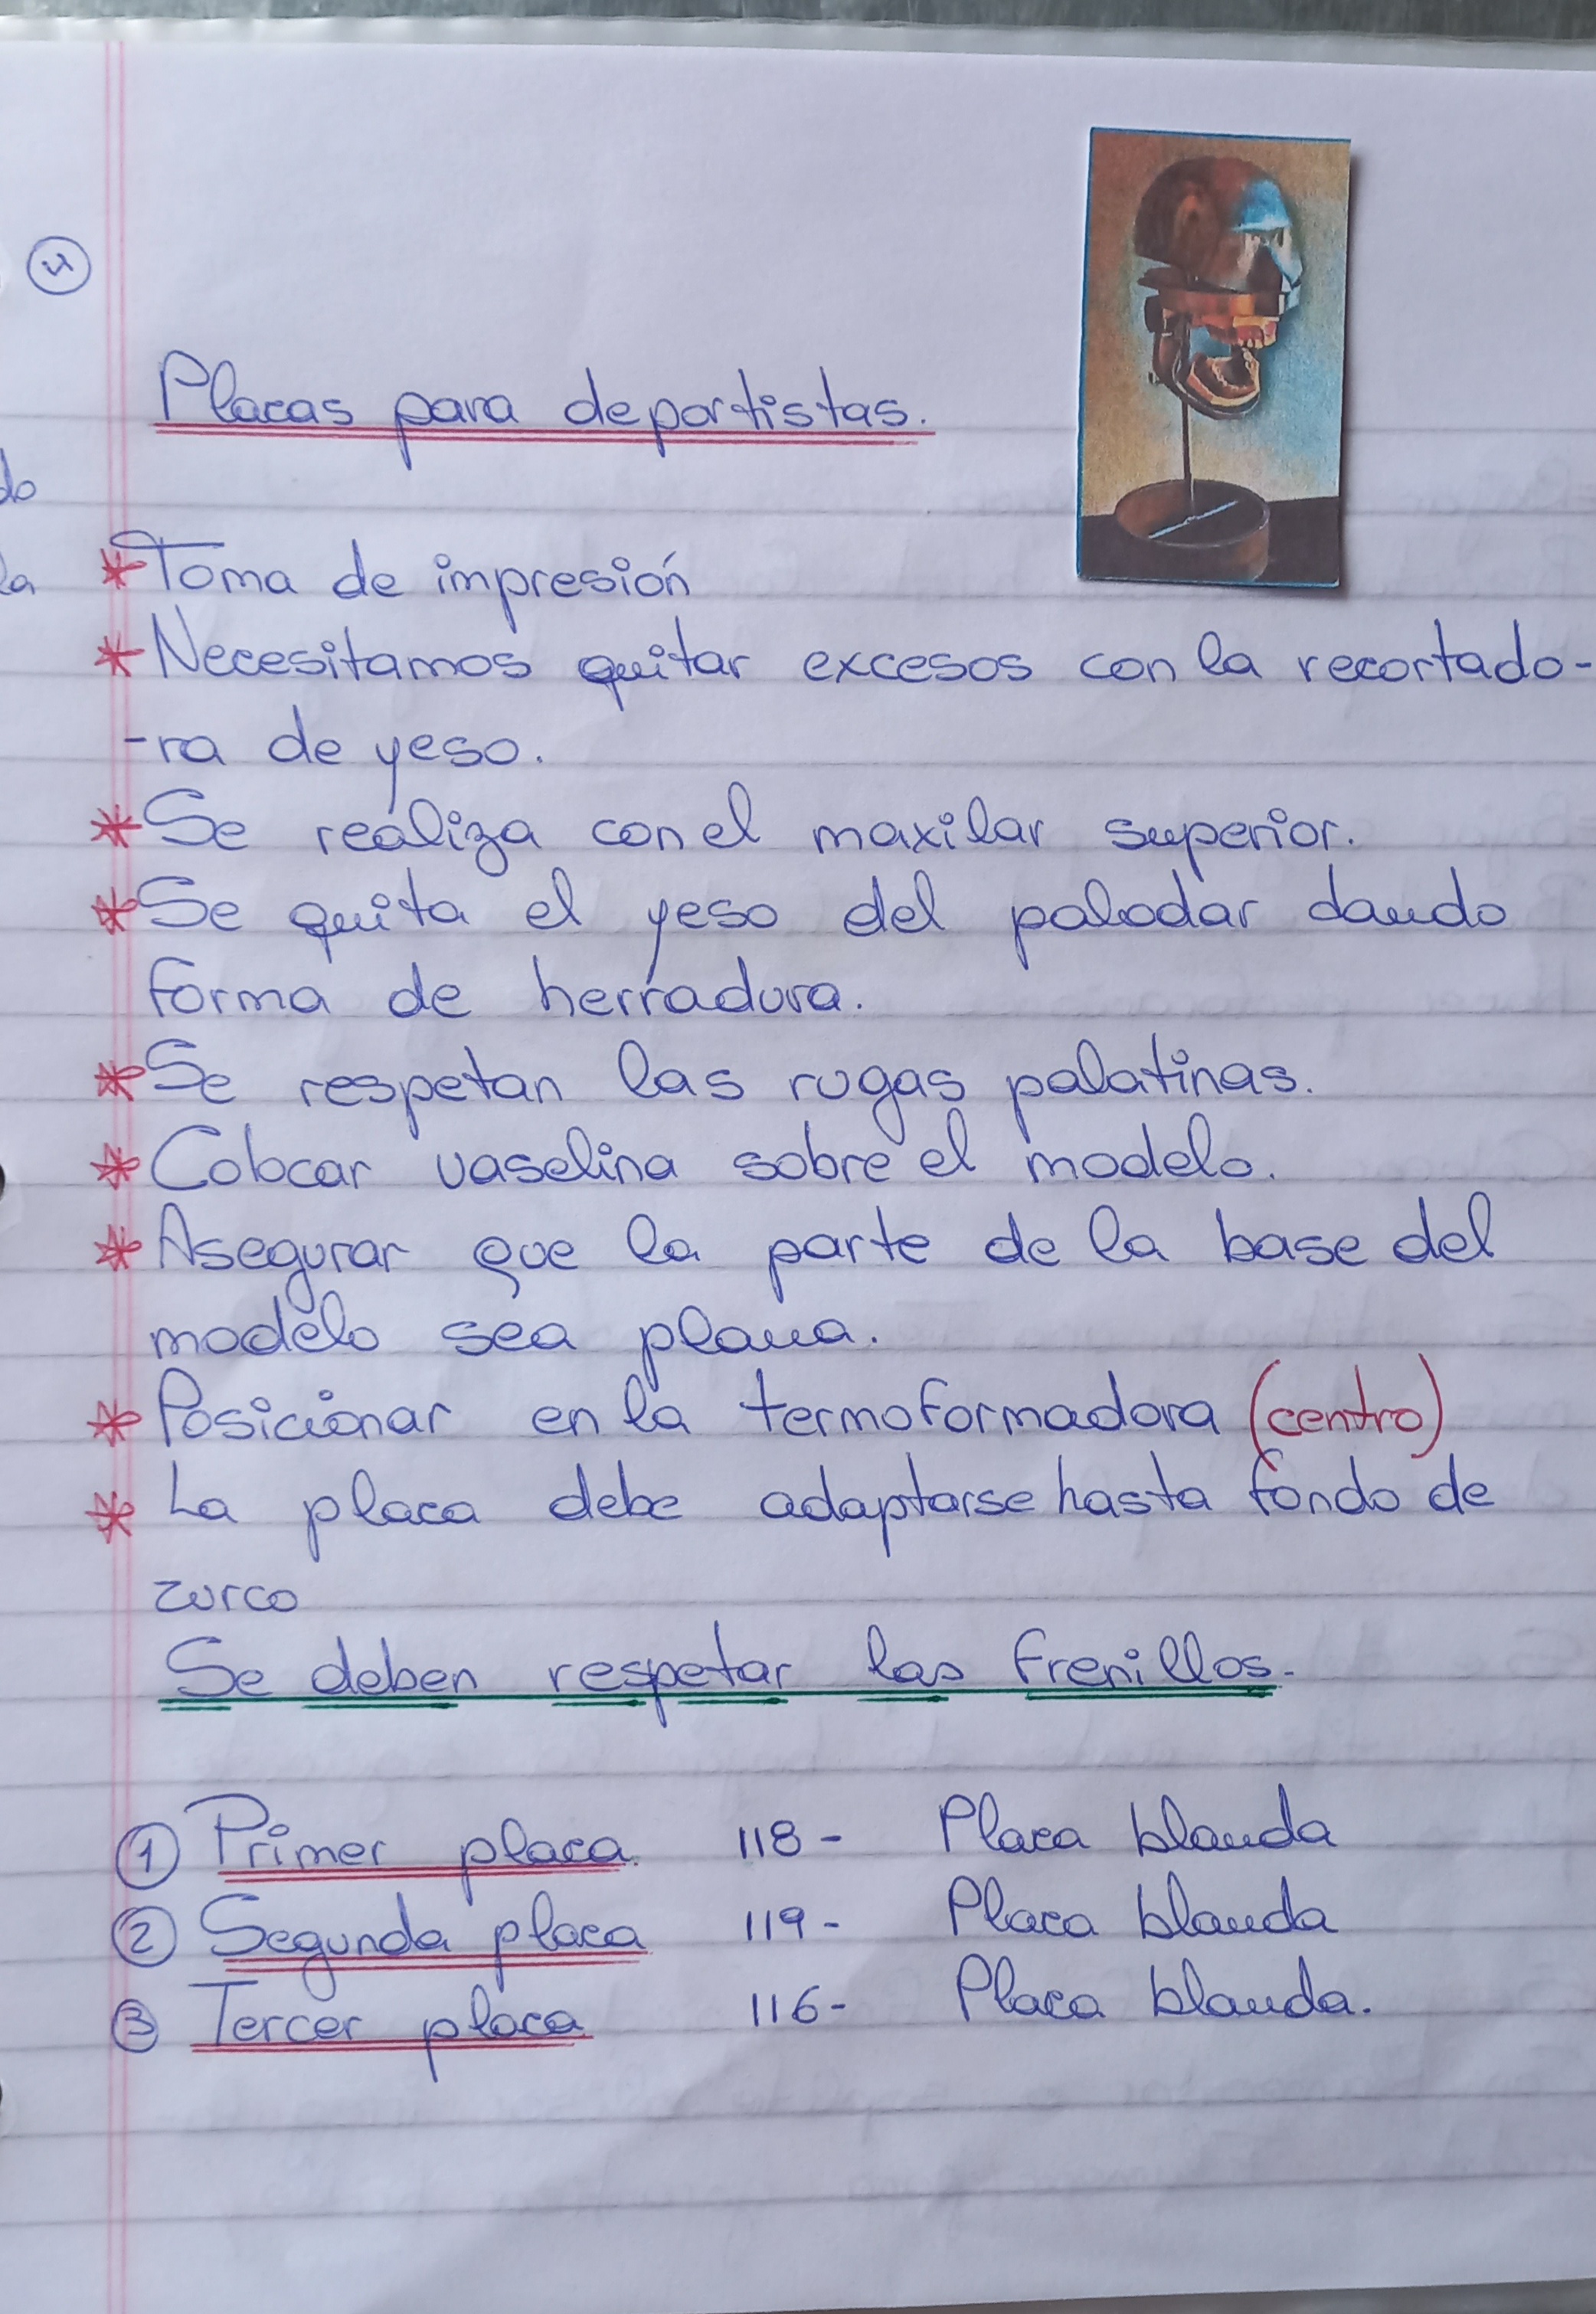 4
Placas para deportistas.
do
la
* Toma de impresión
* Necesitamos quitar excesos con la recortado-
-ra de yeso.
* Se realiza con el maxilar superior.
* Se quita el yeso del paladar dando
forma de herradura.
* Se respetan las rugas palatinas.
* Colocar vaselina sobre el modelo.
* Asegurar que la parte de la base del
modelo sea plana.
* Posicionar en la termoformadora (centro)
* La placa debe adaptarse hasta fondo de
zurco
Se deben respetar los frenillos.
1 Primer placa. 118- Placa blanda
2 Segunda placa 119- Placa blanda
3 Tercer placa 116- Placa blanda.